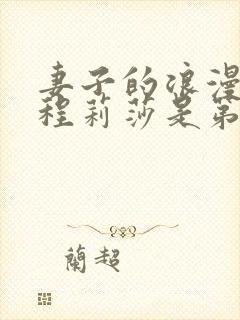 妻子的浪漫
程莉莎是第
蘭超